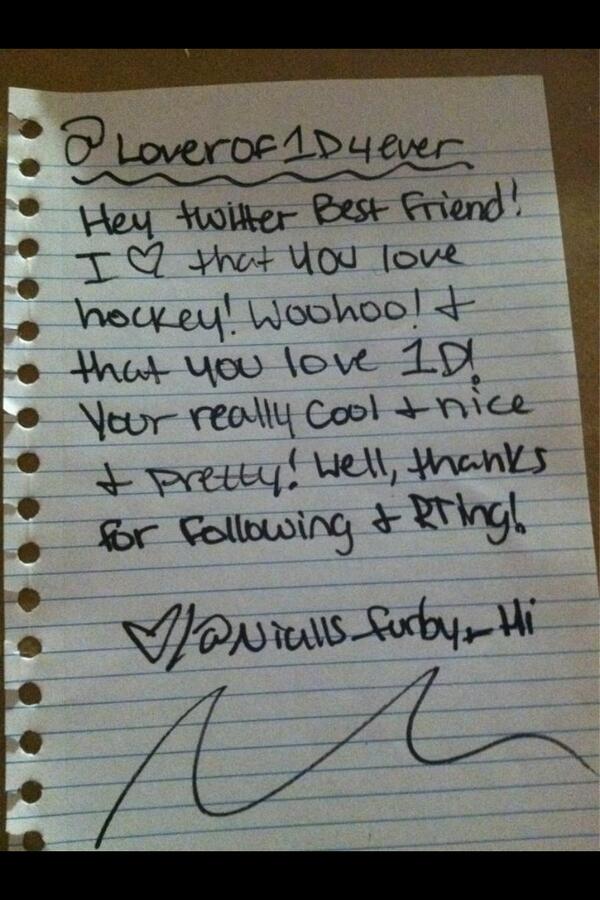 @LoverOF1D4ever
Hey twitter Best Friend!
I ♡ that you love
hockey! Woohoo! +
that you love 1D!
Your really cool + nice
+ pretty! Well, thanks
for Following + RTing!
♡/@Nialls_furby_Hi